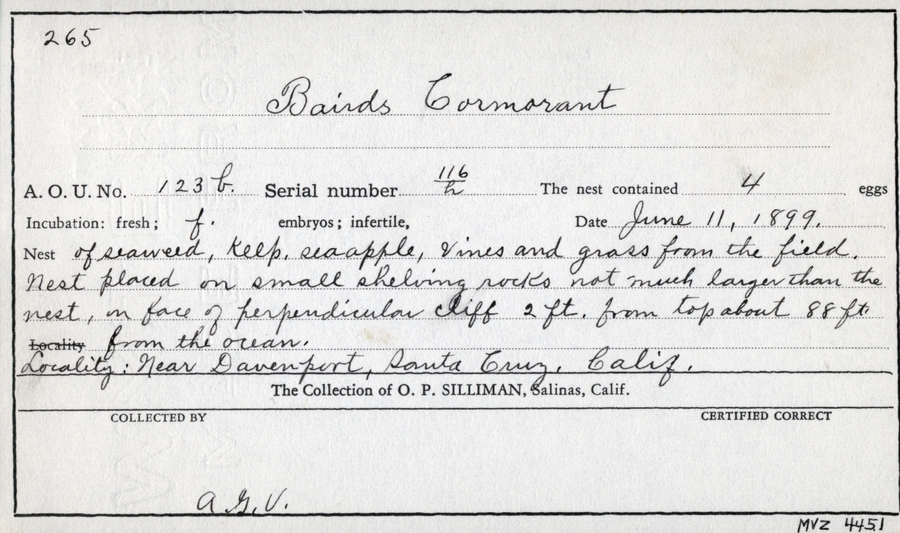 265
Bairds Cormorant
A. O. U. No. 123 b. Serial number 116/h The nest contained 4 eggs
Incubation: fresh; f. embryos; infertile, Date June 11, 1899.
Nest of seaweed, Kelp, seaapple, Vines and grass from the field.
Nest placed on small shelving rocks not much larger than the
nest, in face of perpendicular cliff 2 ft. from top about 88 ft.
Locality from the ocean.
Locality: Near Davenport, Santa Cruz, Calif.
The Collection of O. P. SILLIMAN, Salinas, Calif.
COLLECTED BY CERTIFIED CORRECT
A.G.V.
MVZ 4451